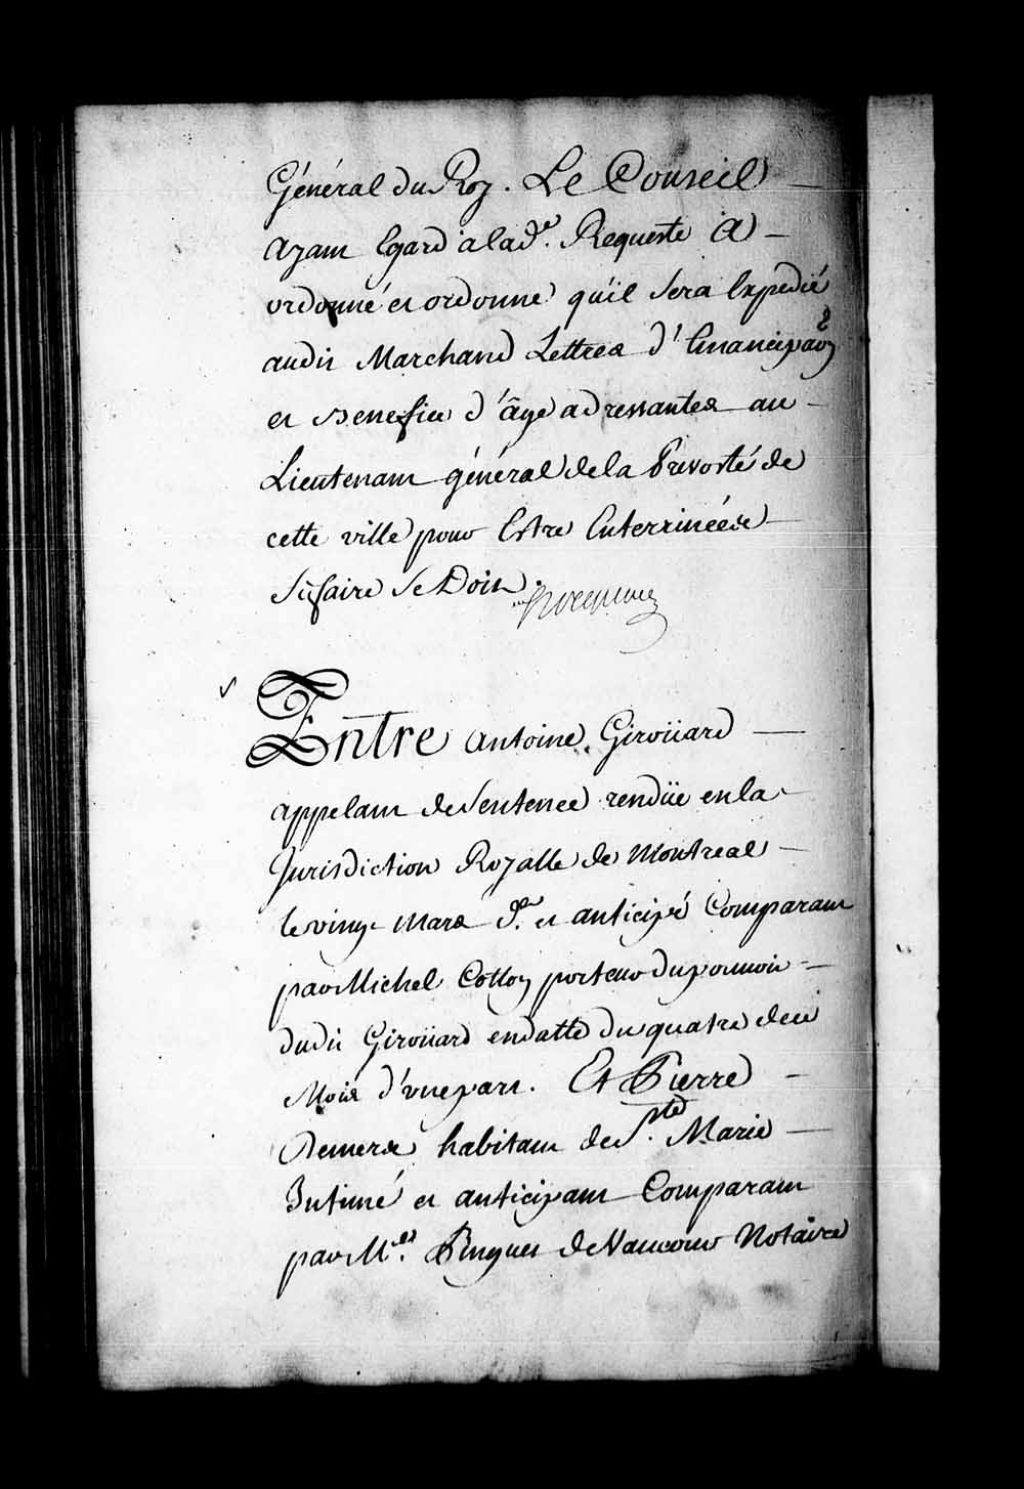 Général du Roy. Le Conseil
ayant Egard a lad.e Requeste A
ordonné et ordonne qu'il sera Expedié
audit Marchand Lettres d'Emancipaõn
et Benefice d'âge adressantes au
Lieutenant général de la Prevosté de
cette ville pour Estre Enterrinées
si faire se Doit.
Hocquart
Entre antoine Giroüard
appelant de sentence rendüe en la
Jurisdiction Royalle de Montreal
le vingt Mars d.er et anticipé Comparant
par Michel Cotton porteur du pouvoir
dudit Giroüard en datte du quatre de ce
Mois d'une part. Et Pierre
Demers habitant de S.te Marie
Intimé et anticipant Comparant
par M.e Pinguet de Vaucour Notaire